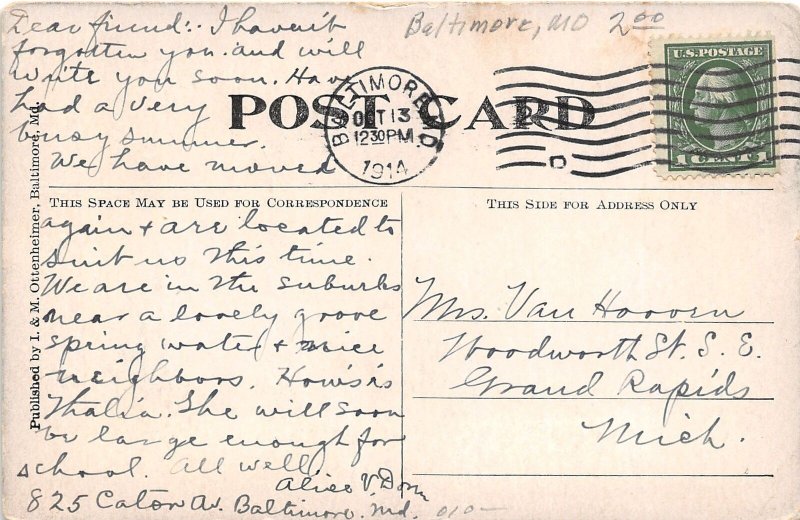 Dear friend:. I haven't
forgotten you. and will
write you soon. Have
had a very
busy summer.
We have moved
again + are located to
suit us this time.
We are in the suburbs
near a lovely grove
spring water + nice
neighbors. How is
Thalia. She will soon
be large enough for
school. All well
Alice V. Dorn
825 Caton Av. Baltimore. Md.
Baltimore, MD 2.00
POST CARD
BALTIMORE, MD
OCT 13
12 30 PM
1914
D
U.S. POSTAGE
1 CENT 1
THIS SPACE MAY BE USED FOR CORRESPONDENCE
THIS SIDE FOR ADDRESS ONLY
Mrs. Van Hooven
Woodworth St. S. E.
Grand Rapids
Mich.
Published by I. & M. Ottenheimer, Baltimore, Md.